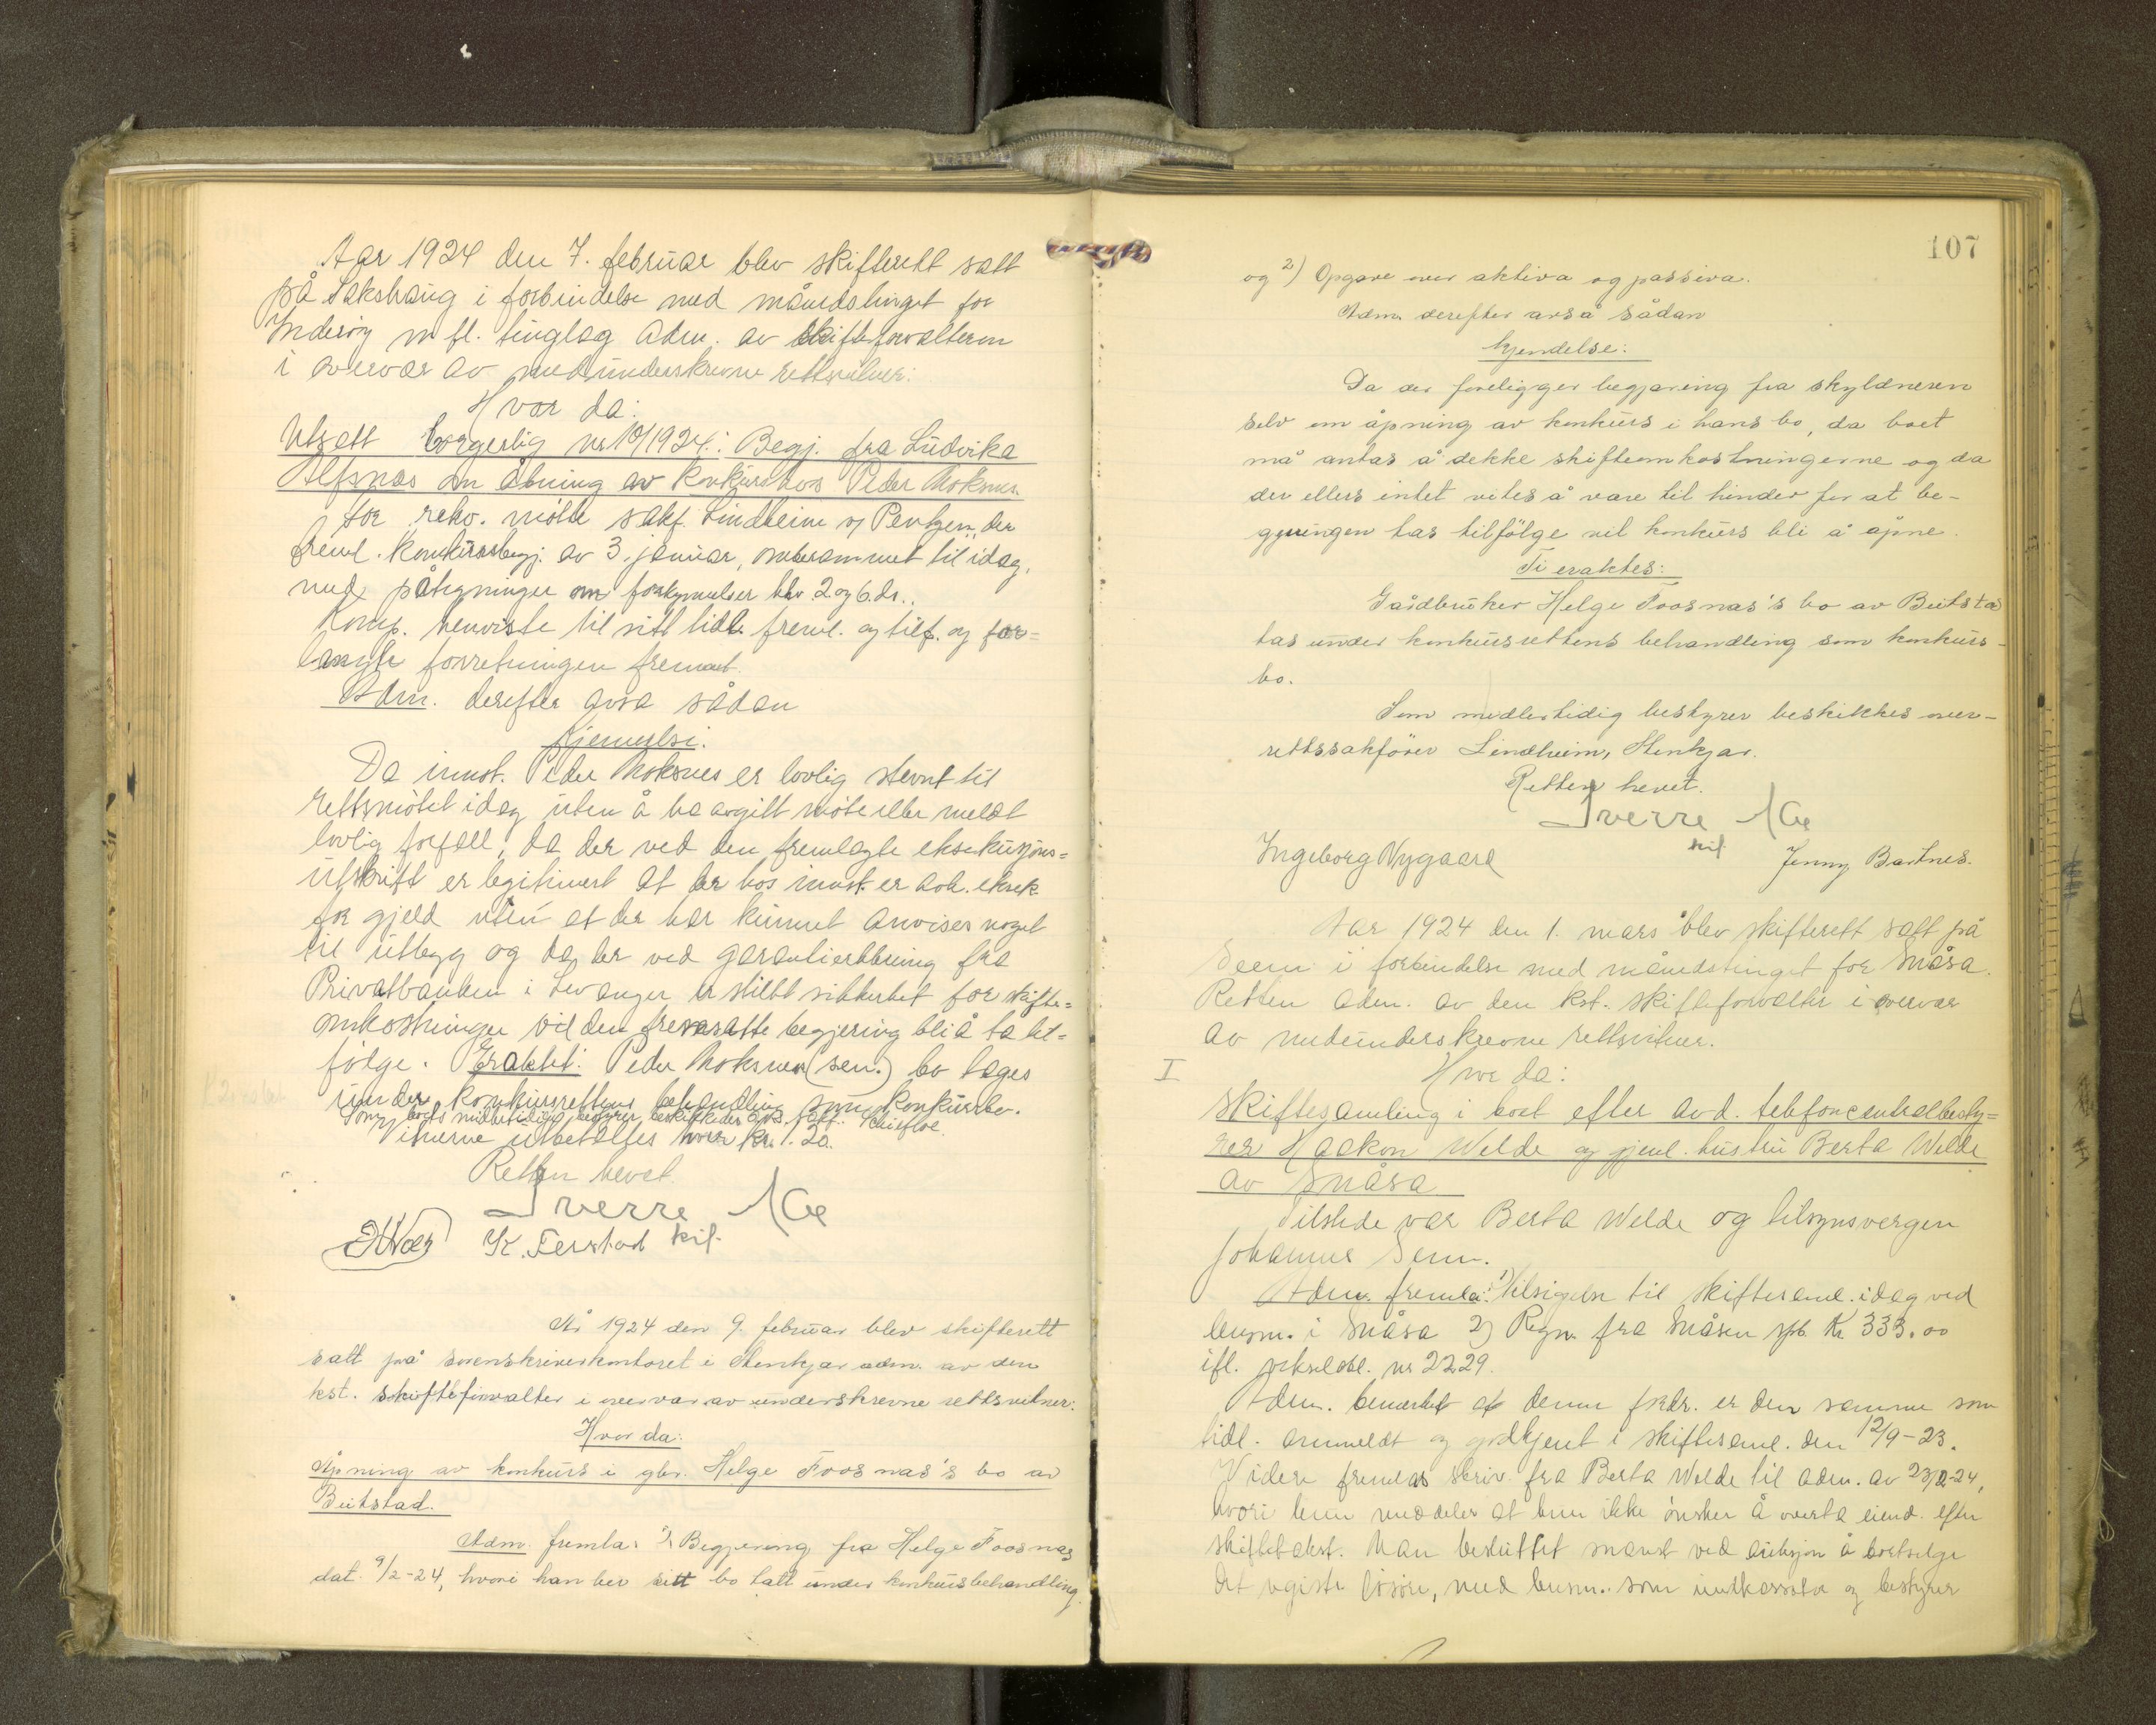 Aar 1924 den 7. februar blev skifterett satt
på Sakshaug i forbindelse med månedstinget for
Inderøy m fl. tinglag Adm. av skifteforvalteren
i overvær av medunderskrevne rettsvitner:
Hvor da:
Utsatt borgerlig nr 10/1924: Begj. fra Ludvika
Alfsnes om åbning av konkurs hos Peder Moksnes.
For rekv. møtte sakf. Lindheim v/ Pentzen, der
freml. konkursbegj. av 3 januar, omberammet til idag,
med påtegninger om forkynnelser blv 2 og 6. ds..
Komp. henviste til sitt tidl. freml. og tilf. og for=
langte forretningen fremmet.
Adm. derefter avsa sådan
kjennelse:
Da innst. Peder Moksnes er lovlig stevnt til
rettsmøtet idag uten å ha avgitt møte eller meldt
lovlig forfall, da der ved den fremlagte eksekusjons=
utskrift er legitimert at der hos innst. er avh. eksek
for gjeld uten at der har kunnet anvises noget
til utlegg og da der ved garantierklæring fra
Privatbanken i Levanger er stillet sikkerhet for skifte=
omkostninger vil den fremsatte begjæring bli å ta til=
følge. Eraktet: Peder Moksnes (sen.) bo tages
under konkursrettens behandling som konkursbo.
Som boets midlertidige bestyrer beskikkedes o.r.s. sakf. Schiefloe.
Vitnerne utbetaltes hver kr. 1. 20.
Retten hevet.
Sverre
K. Ferstad skif.
År 1924 den 9. februar blev skifterett
satt på sorenskriverkontoret i Stenkjær adm. av den
kst. skifteforvalter i overvær av underskrevne rettsvitner:
Hvor da:
Åpning av konkurs i gbr. Helge Foosnæs's bo av
Beitstad.
Adm. fremla: 1) Begjæring fra Helge Foosnæs
dat. 9/2-24, hvori han ber sitt bo tatt under konkursbehandling
107
og 2) Opgave over aktiva og passiva.
Adm. derefter avså sådan
kjendelse:
Da der foreligger begjæring fra skyldneren
selv om åpning av konkurs i hans bo, da boet
må antas å dekke skifteomkostningerne og da
der ellers intet vites å være til hinder for at be-
gjæringen tas tilfølge vil konkurs bli å åpne.
Ti eraktes:
Gårdbruker Helge Foosnæs's bo av Beitstad
tas under konkursrettens behandling som konkurs-
bo.
Som midlertidig bestyrer beskikkes over-
rettssakfører Lindheim, Stenkjær.
Retten hevet.
Sverre
skif.
Ingeborg Nygaard Jenny Bartnes.
Aar 1924 den 1. mars blev skifterett satt på
Seem i forbindelse med månedstinget for Snåsa.
Retten adm. av den kst. skifteforvalter i overvær
av medunderskrevne rettsvitner.
I
Hvor da:
Skiftesamling i boet efter avd. telefoncentralbesty=
rer Haakon Welde og gjenl. hustru Berta Welde
av Snåsa
Tilstede var Berta Welde og tilsynsvergen
Johannes Seem.
Adm. fremla: 1) Tilsigelse til skiftesaml. idag ved
lensm. i Snåsa 2) Regn. fra Snåsen spb. Kr. 333.00
ifl. vekselobl. nr 2229.
Adm. bemerket at denne fordr. er den samme som
tidl. anmeldt og godkjent i skiftesaml. den 12/9-23.
Videre fremlas skriv. fra Berta Welde til adm. av 23/2-24,
hvori hun meddeler at hun ikke ønsker å overta eiend. efter
skiftetakst. Man besluttet snarest ved auksjon å bortselge
det registr. løsøre, med lensm. som inndkassator og bestyrer